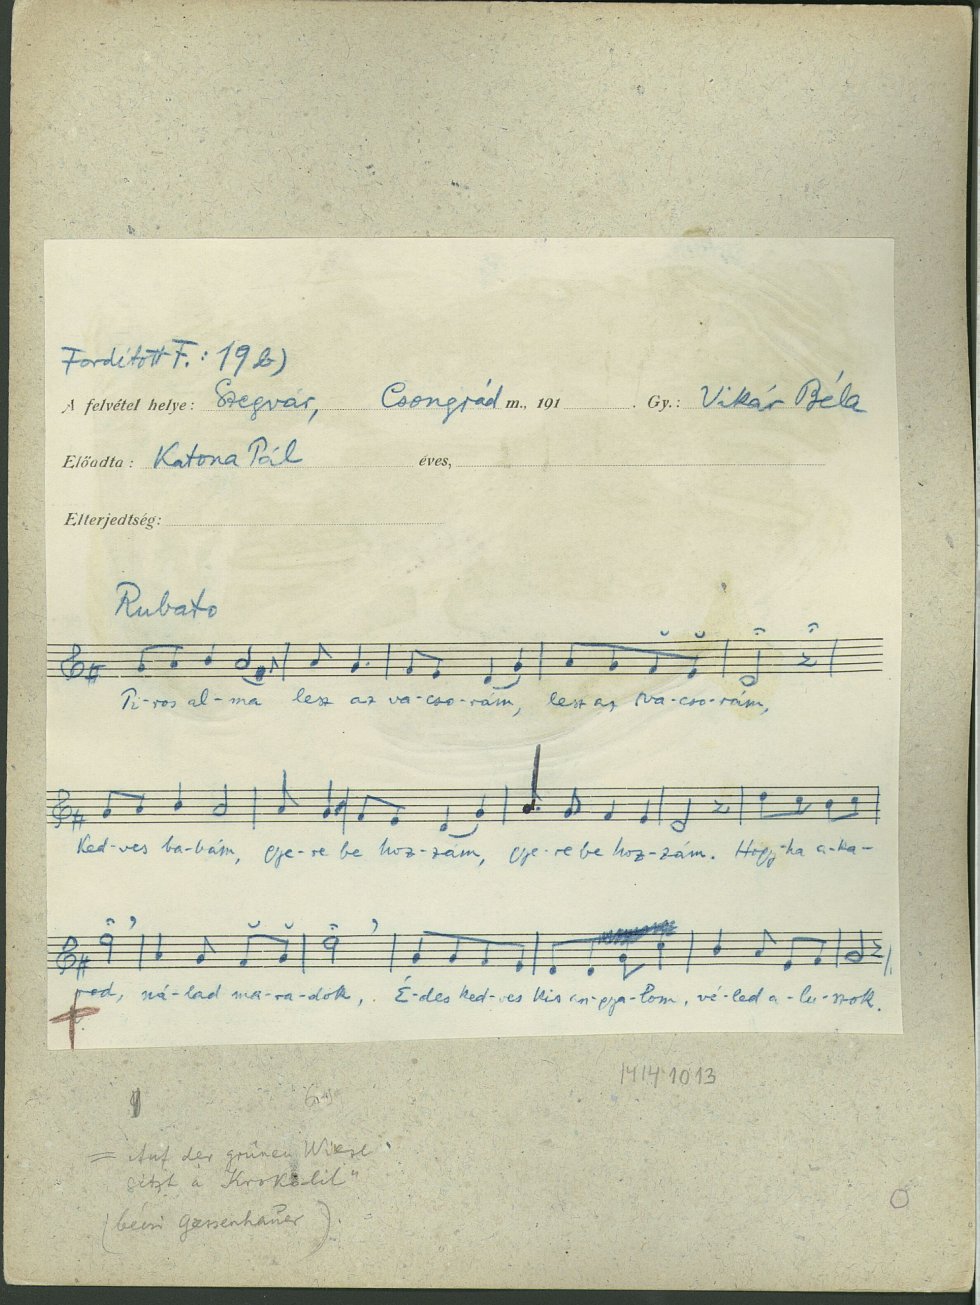 Fordított F.: 19 b)
A felvétel helye: Szegvár, Csongrád m., 191 . Gy.: Vikár Béla
Előadta: Katona Pál éves,
Elterjedtség:
Rubato
Pi-ros al-ma lesz az va-cso-rám, lesz az va-cso-rám,
Ked-ves ba-bám, gye-re be hoz-zám, gye-re be hoz-zám. Hogy-ha a-ka-
rod, ná-lad ma-ra-dok, . É-des ked-ves kis an-gya-lom, vé-led a-lu-szok.
1414 1013
= Auf der grünen Wiese
sitzt a Krokodil"
(bécsi Gassenhauer)